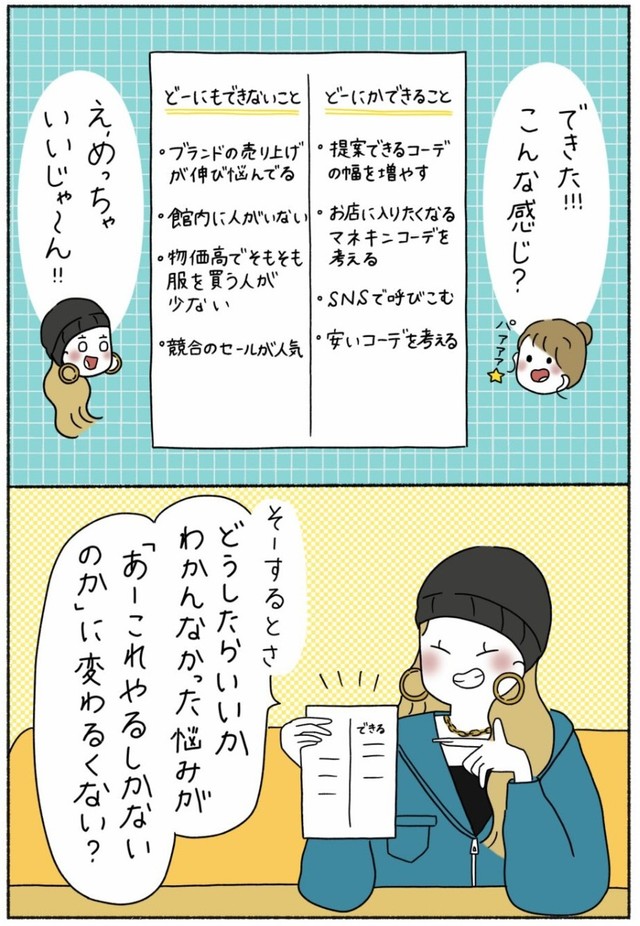 できた!!!
こんな感じ?
パァァァ
どーにもできないこと
・ブランドの売り上げ
が伸び悩んでる
・館内に人がいない
・物価高でそもそも
服を買う人が
少ない
・競合のセールが人気
どーにかできること
・提案できるコーデ
の幅を増やす
・お店に入りたくなる
マネキンコーデを
考える
・SNSで呼びこむ
・安いコーデを考える
え、めっちゃ
いいじゃ〜ん!!
そーするとさ
どうしたらいいか
わかんなかった悩みが
「あーこれやるしかない
のか」に変わるくない?
できる